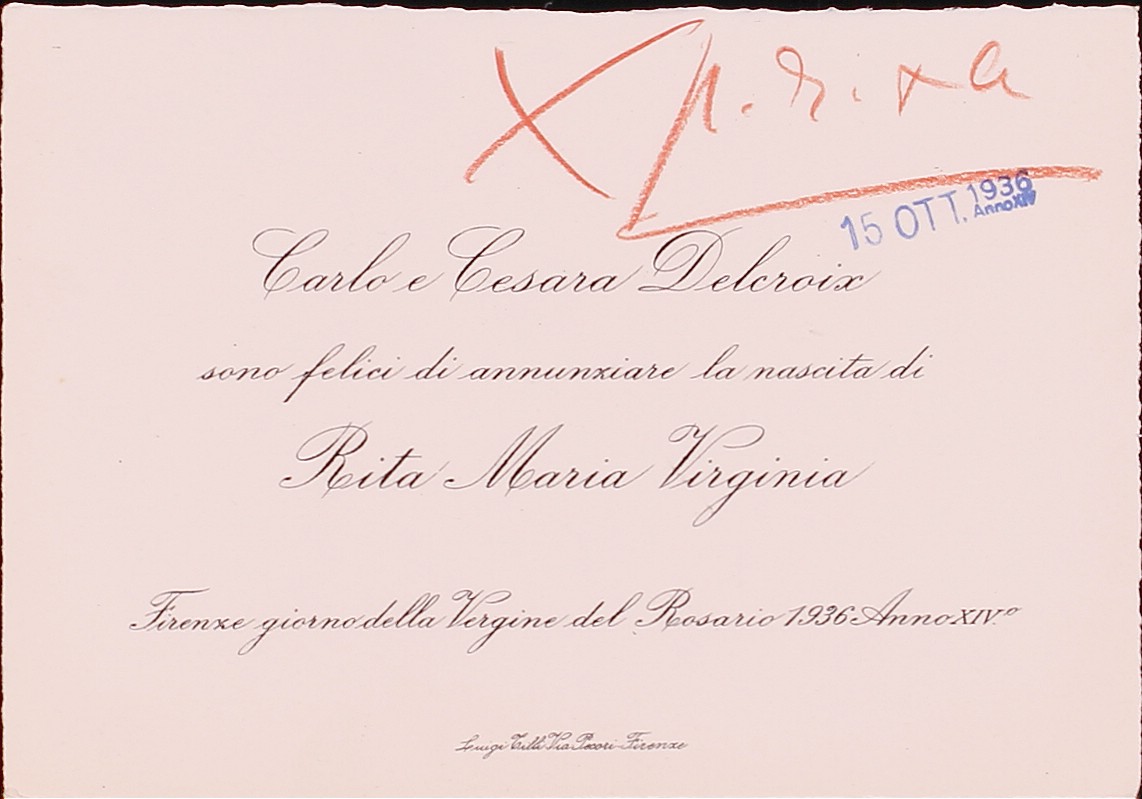 X
15 OTT. 1936
Anno XIV
Carlo e Cesara Delcroix
sono felici di annunziare la nascita di
Rita Maria Virginia
Firenze giorno della Vergine del Rosario 1936 - Anno XIV.º
Luigi Via Pecori - Firenze